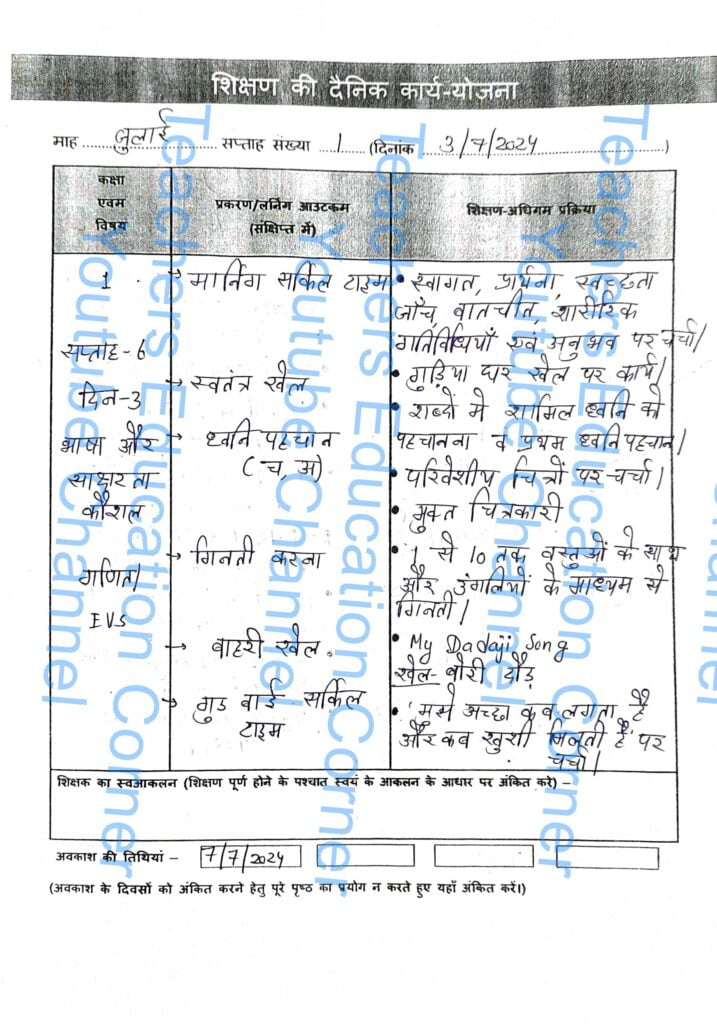 शिक्षण की दैनिक कार्य-योजना
माह ..... जुलाई ..... सप्ताह संख्या ...1... (दिनांक ... 3/7/2024 ...)
कक्षा
एवम
विषय
प्रकरण/लर्निंग आउटकम
(संक्षिप्त में)
शिक्षण-अधिगम प्रक्रिया
1
सप्ताह-6
दिन-3
भाषा और
साक्षरता
कौशल
गणित/
EVS
→ मार्निंग सर्किल टाइम
→ स्वतंत्र खेल
→ ध्वनि पहचान
(च, अ)
→ गिनती करना
→ बाहरी खेल.
→ गुड बाई सर्किल
टाइम
• स्वागत, प्रार्थना, स्वच्छता
जाँच, बातचीत, शारीरिक
गतिविधियाँ एवं अनुभव पर चर्चा।
• गुड़िया घर खेल पर कार्य।
• शब्दों में शामिल ध्वनि को
पहचानना व प्रथम ध्वनि पहचान।
• परिवेशीय चित्रों पर चर्चा।
• मुक्त चित्रकारी
• 1 से 10 तक वस्तुओं के साथ
और उंगलियों के माध्यम से
गिनती।
• My Dadaji Song
खेल- बोरी दौड़
• 'मुझे अच्छा कब लगता है
और कब खुशी मिलती है' पर
चर्चा।
शिक्षक का स्वआकलन (शिक्षण पूर्ण होने के पश्चात स्वयं के आकलन के आधार पर अंकित करे) –
अवकाश की तिथियां – 7/7/2024
(अवकाश के दिवसों को अंकित करने हेतु पूरे पृष्ठ का प्रयोग न करते हुए यहाँ अंकित करें।)
Teachers Education Corner
Youtube Channel
Teachers Education Corner
Youtube Channel
Teachers Education Corner
Youtube Channel